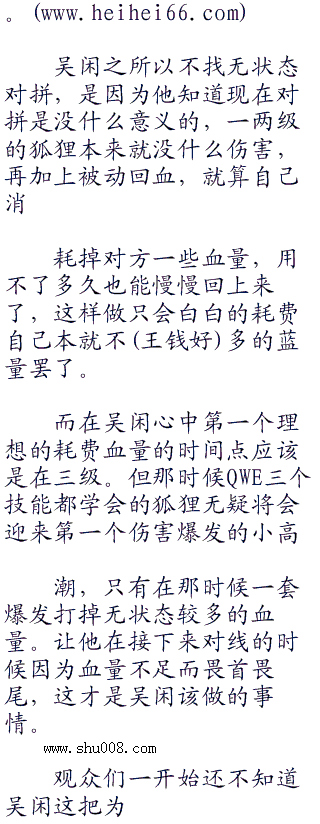 。(www.heihei66.com)
吴闲之所以不找无状态
对拼，是因为他知道现在对
拼是没什么意义的，一两级
的狐狸本来就没什么伤害，
再加上被动回血，就算自己
消
耗掉对方一些血量，用
不了多久也能慢慢回上来
了，这样做只会白白的耗费
自己本就不(王钱好)多的蓝
量罢了。
而在吴闲心中第一个理
想的耗费血量的时间点应该
是在三级。但那时候QWE三个
技能都学会的狐狸无疑将会
迎来第一个伤害爆发的小高
潮，只有在那时候一套
爆发打掉无状态较多的血
量。让他在接下来对线的时
候因为血量不足而畏首畏
尾，这才是吴闲该做的事
情。
www.shu008.com
观众们一开始还不知道
吴闲这把为